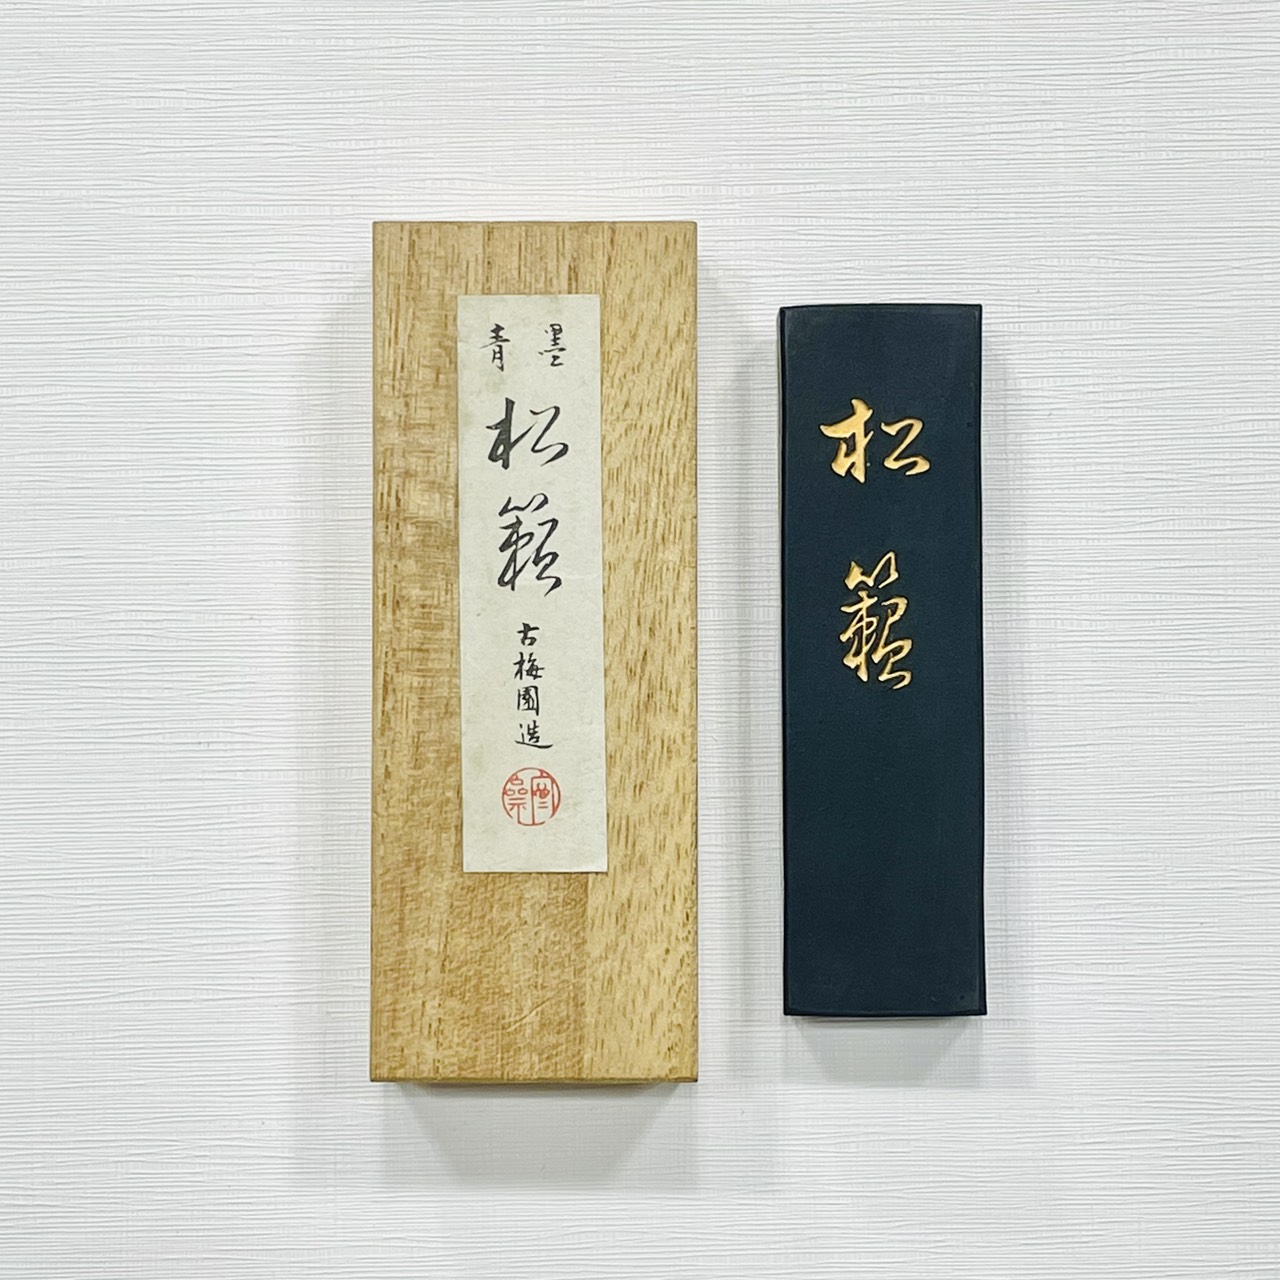 青墨
松籟
古梅園造
松
籟